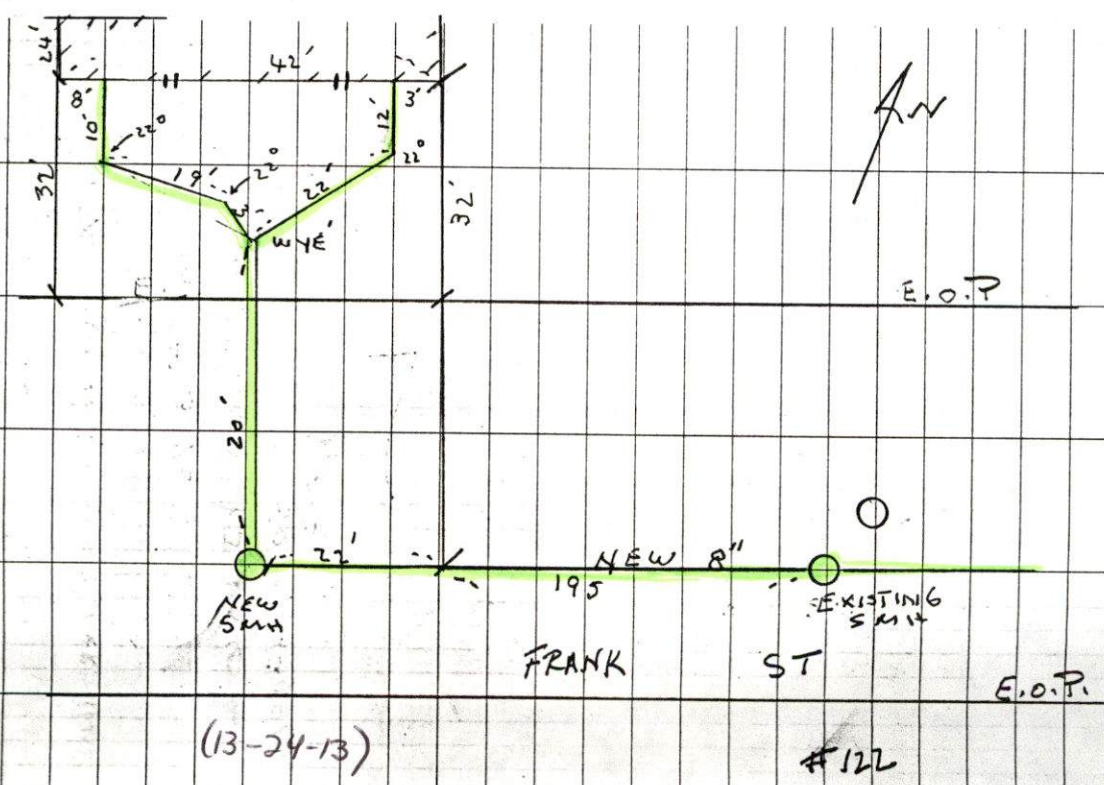 24'
42'
8'
3'
10'
22°
12'
22°
19'
22°
22'
32'
32'
WYE
E.O.P
20'
22'
NEW 8"
195
NEW
SMH
EXISTING
SMH
FRANK ST
E.O.P.
(13-24-13)
#122
N